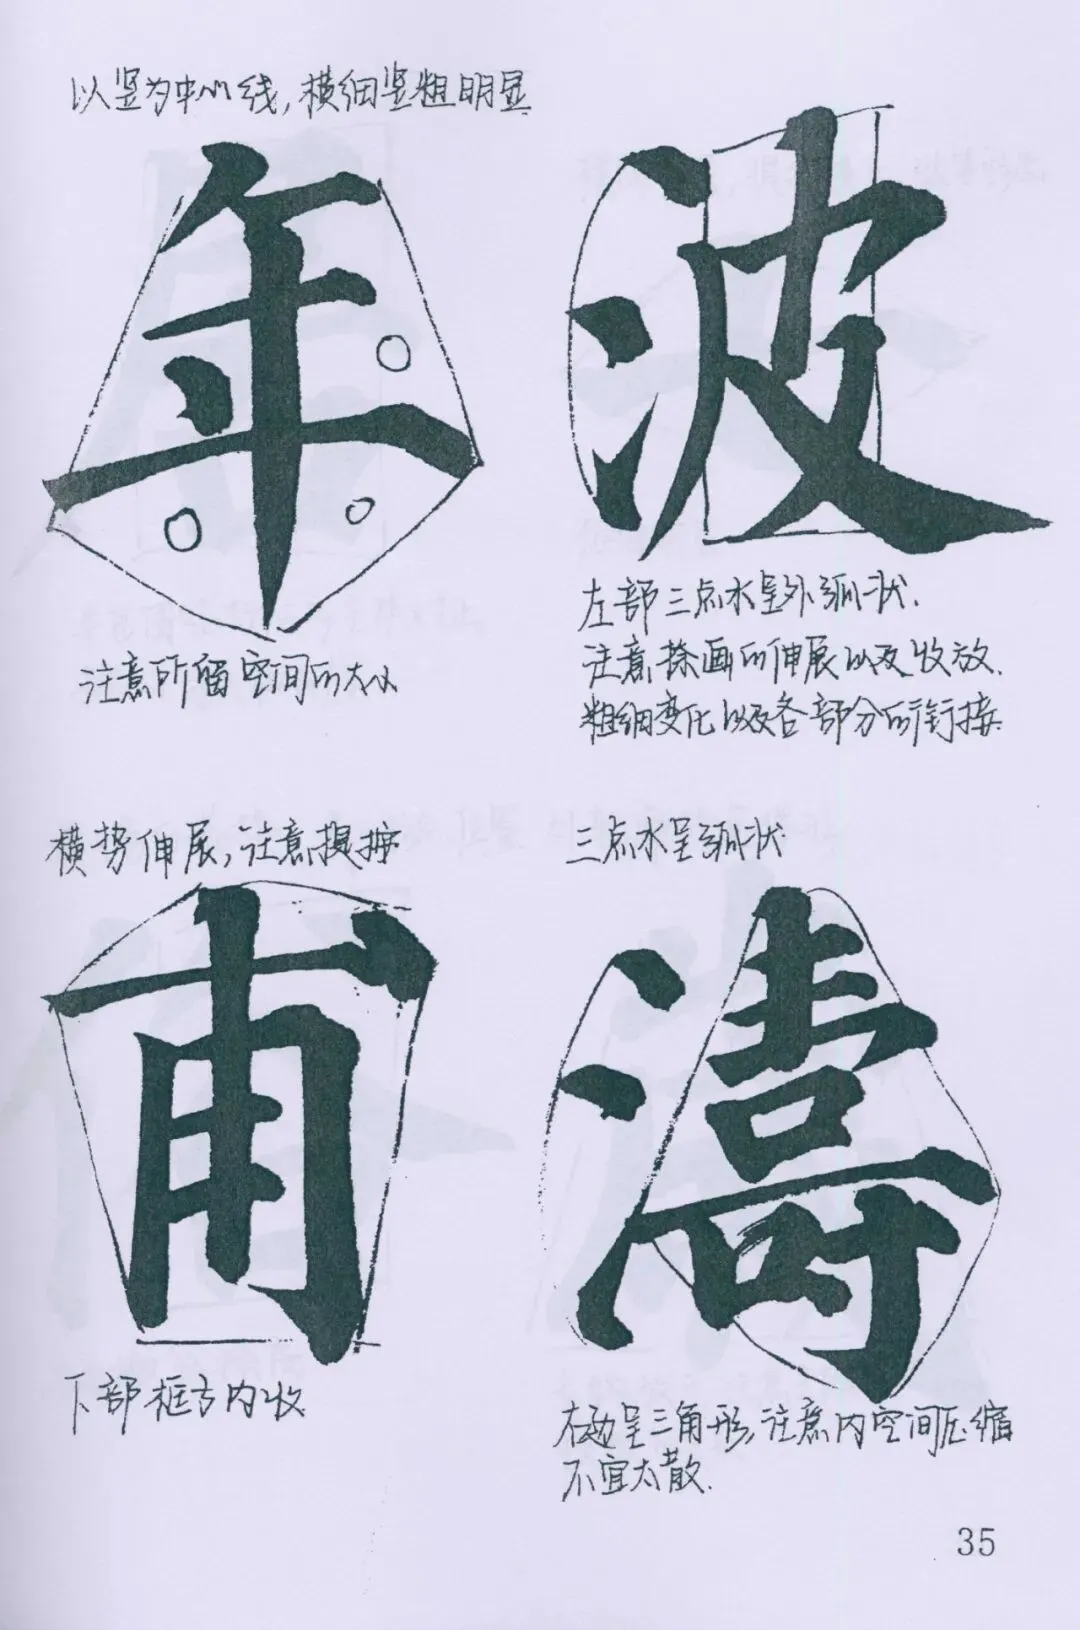 以竖为中心线,横细竖粗明显
年
注意所留空间的大小
波
左部三点水呈外弧状.
注意捺画的伸展以及收放.
粗细变化以及各部分的衔接.
横势伸展,注意提按
甫
下部框方内收
三点水呈弧状
濤
右边呈三角形,注意内空间压缩
不宜太散.
35